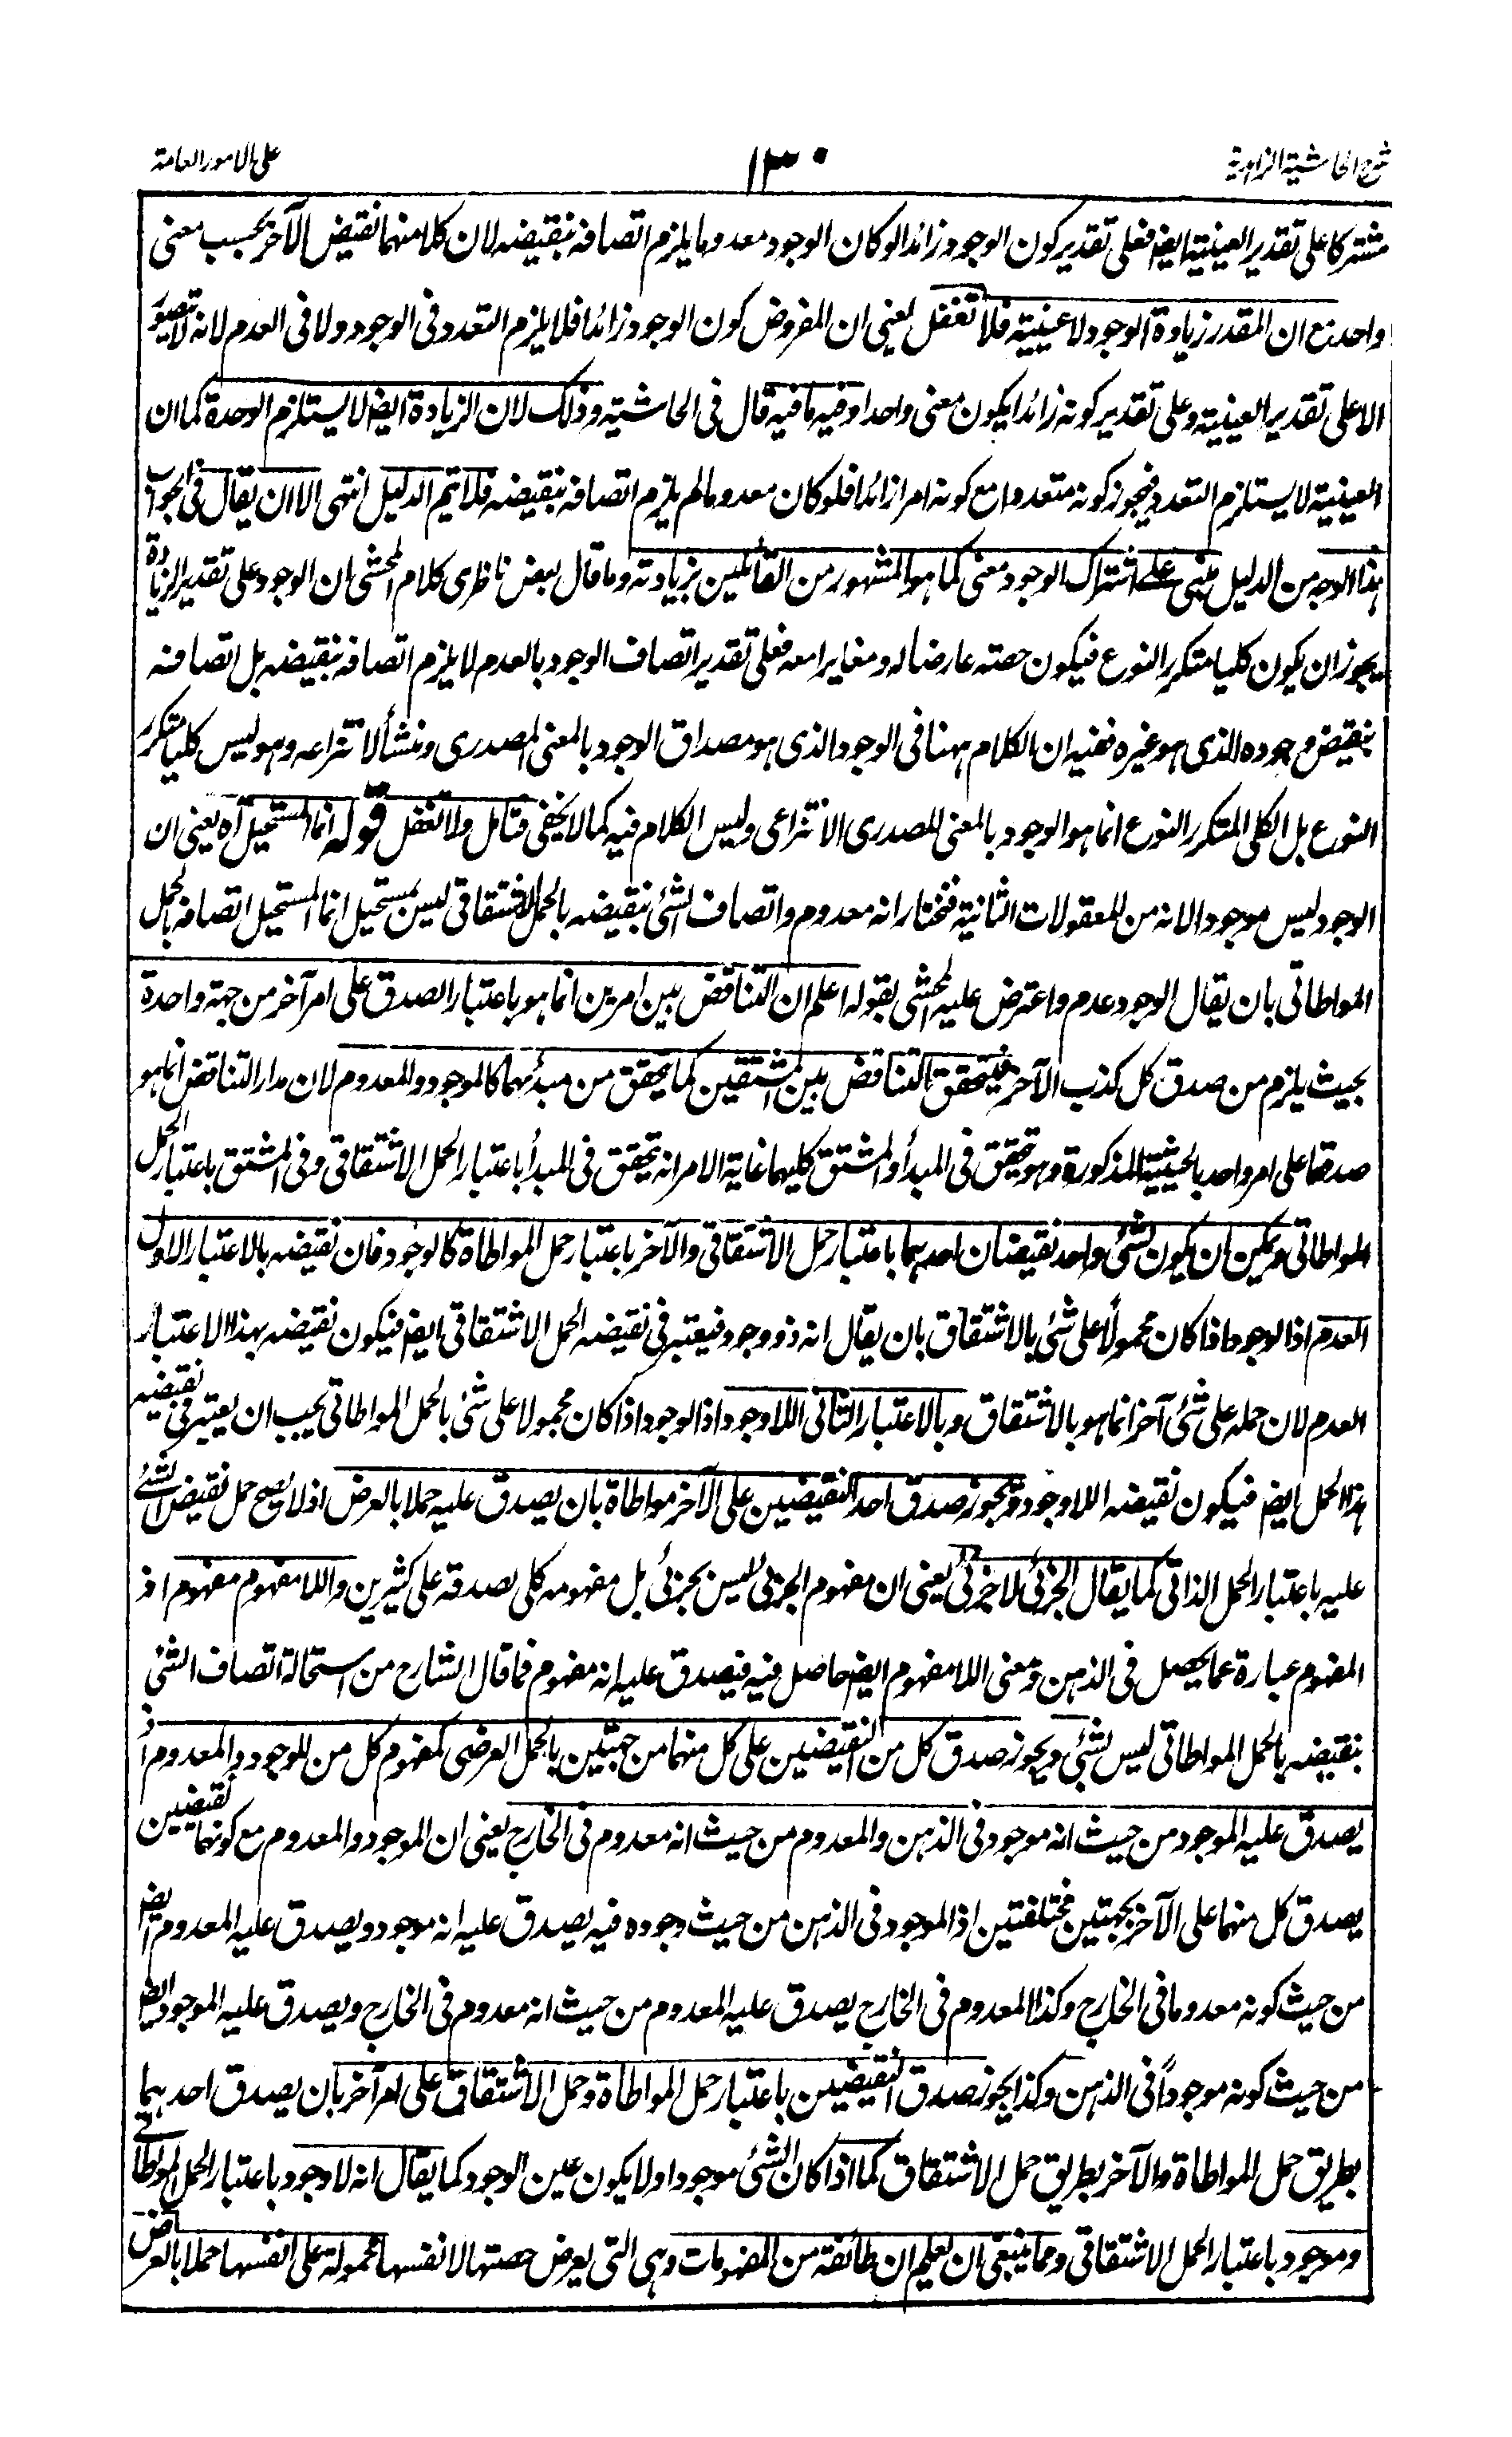 شرح الحاشية الزاهدية
١٣٠
على الامور العامة
مشتركا على تقدير العينية ايض فعلى تقدير كون الوجود زائدا لو كان الوجود معدوما يلزم اتصافه بنقيضه لان كلا منهما نقيض الآخر بحسب معنى
واحد مع ان المقدر زيادة الوجود لا عينيته فلا تغفل يعنى ان المفروض كون الوجود زائدا فلا يلزم التعدد فى الوجود ولا فى العدم لانه لا يتصور
الا على تقدير العينية وعلى تقدير كونه زائدا يكون معنى واحدا وفيه ما فيه قال فى الحاشية وذلك لان الزيادة ايض لا يستلزم الوحدة كما ان
العينية لا يستلزم التعدد فيجوز كونه متعددا مع كونه امرا زائدا فلو كان معدوما لم يلزم اتصافه بنقيضه فلا يتم الدليل انتهى الا ان يقال فى الجواب
هذا الوجه من الدليل مبنى على اشتراك الوجود معنى كما هو المشهور من القائلين بزيادته وما قال بعض ناظرى كلام المحشى ان الوجود على تقدير الزيادة
يجوز ان يكون كليا متكرر النوع فيكون حصته عارضا له ومغايرا معه فعلى تقدير اتصاف الوجود بالعدم لا يلزم اتصافه بنقيضه بل اتصافه
بنقيض وجوده الذى هو غيره ففيه ان الكلام ههنا فى الوجود الذى هو مصداق الوجود بالمعنى المصدرى ومنشأ لانتزاعه وهو ليس كليا متكرر
النوع بل الكلى المتكرر النوع انما هو الوجود بالمعنى المصدرى الانتزاعى وليس الكلام فيه كما لا يخفى فتامل ولا تغفل قوله انما المستحيل آه يعنى ان
الوجود ليس موجودا لانه من المعقولات الثانية فنختار انه معدوم واتصاف الشئ بنقيضه بالحمل الاشتقاقى ليس بمستحيل انما المستحيل اتصافه بالحمل
المواطاتى بان يقال الوجود عدم واعترض عليه المحشى بقوله اعلم ان التناقض بين امرين انما هو باعتبار الصدق على امر آخر من جهة واحدة
بحيث يلزم من صدق كل كذب الآخر فيتحقق التناقض بين المشتقين كما يتحقق من مبدأيهما كالموجود والمعدوم لان مدار التناقض انما هو
صدقهما على امر واحد بالحيثية المذكورة وهو تحقيق فى المبدأ والمشتق كليهما غاية الامر انه تحقق فى المبدأ باعتبار الحمل الاشتقاقى وفى المشتق باعتبار الحمل
المواطاتى ويمكن ان يكون لشئ واحد نقيضان احدهما باعتبار حمل الاشتقاقى والآخر باعتبار حمل المواطاة كالوجود فان نقيضه بالاعتبار الاول
العدم اذا الوجود اذا كان محمولا على شئ بالاشتقاق بان يقال انه ذو وجود فيعتبر فى نقيضه الحمل الاشتقاقى ايض فيكون نقيضه بهذا الاعتبار
العدم لان حمله على شئ آخر انما هو بالاشتقاق وبالاعتبار الثانى اللاوجود اذا الوجود اذا كان محمولا على شئ بالحمل المواطاتى يجب ان يعتبر فى نقيضه
هذا الحمل ايض فيكون نقيضه اللاوجود ويجوز صدق احد النقيضين على الآخر مواطاة بان يصدق عليه حملا بالعرض اذ لا يصح حمل نقيض الشئ
عليه باعتبار الحمل الذاتى كما يقال الجزئى لا جزئى يعنى ان مفهوم الجزئى ليس بجزئى بل مفهومه كلى يصدقه على كثيرين واللامفهوم مفهوم اذ
المفهوم عبارة عما يحصل فى الذهن ومعنى اللامفهوم ايض حاصل فيه فيصدق عليه انه مفهوم فما قال الشارح من استحالة اتصاف الشئ
بنقيضه بالحمل المواطاتى ليس بشئ ويجوز صدق كل من النقيضين على كل منهما من جهتين بالحمل العرضى كمفهوم كل من الموجود والمعدوم اذ
يصدق عليه الموجود من حيث انه موجود فى الذهن والمعدوم من حيث انه معدوم فى الخارج يعنى ان الموجود والمعدوم مع كونهما نقيضين
يصدق كل منهما على الآخر بجهتين مختلفتين اذ الموجود فى الذهن من حيث وجوده فيه يصدق عليه انه موجود ويصدق عليه المعدوم ايض
من حيث كونه معدوما فى الخارج وكذا المعدوم فى الخارج يصدق عليه المعدوم من حيث انه معدوم فى الخارج ويصدق عليه الموجود ايض
من حيث كونه موجوداً فى الذهن وكذا يجوز صدق النقيضين باعتبار حمل المواطاة وحمل الاشتقاق على امر آخر بان يصدق احدهما
بطريق حمل المواطاة والآخر بطريق حمل الاشتقاق كما اذا كان الشئ موجودا ولا يكون عين الوجود كما يقال انه لا وجود باعتبار الحمل المواطاتى
وموجود باعتبار الحمل الاشتقاقى ومما ينبغى ان يعلم ان طائفة من المفهومات وهى التى يعرض حصتها لانفسها محمولة على انفسها حملا بالعرض